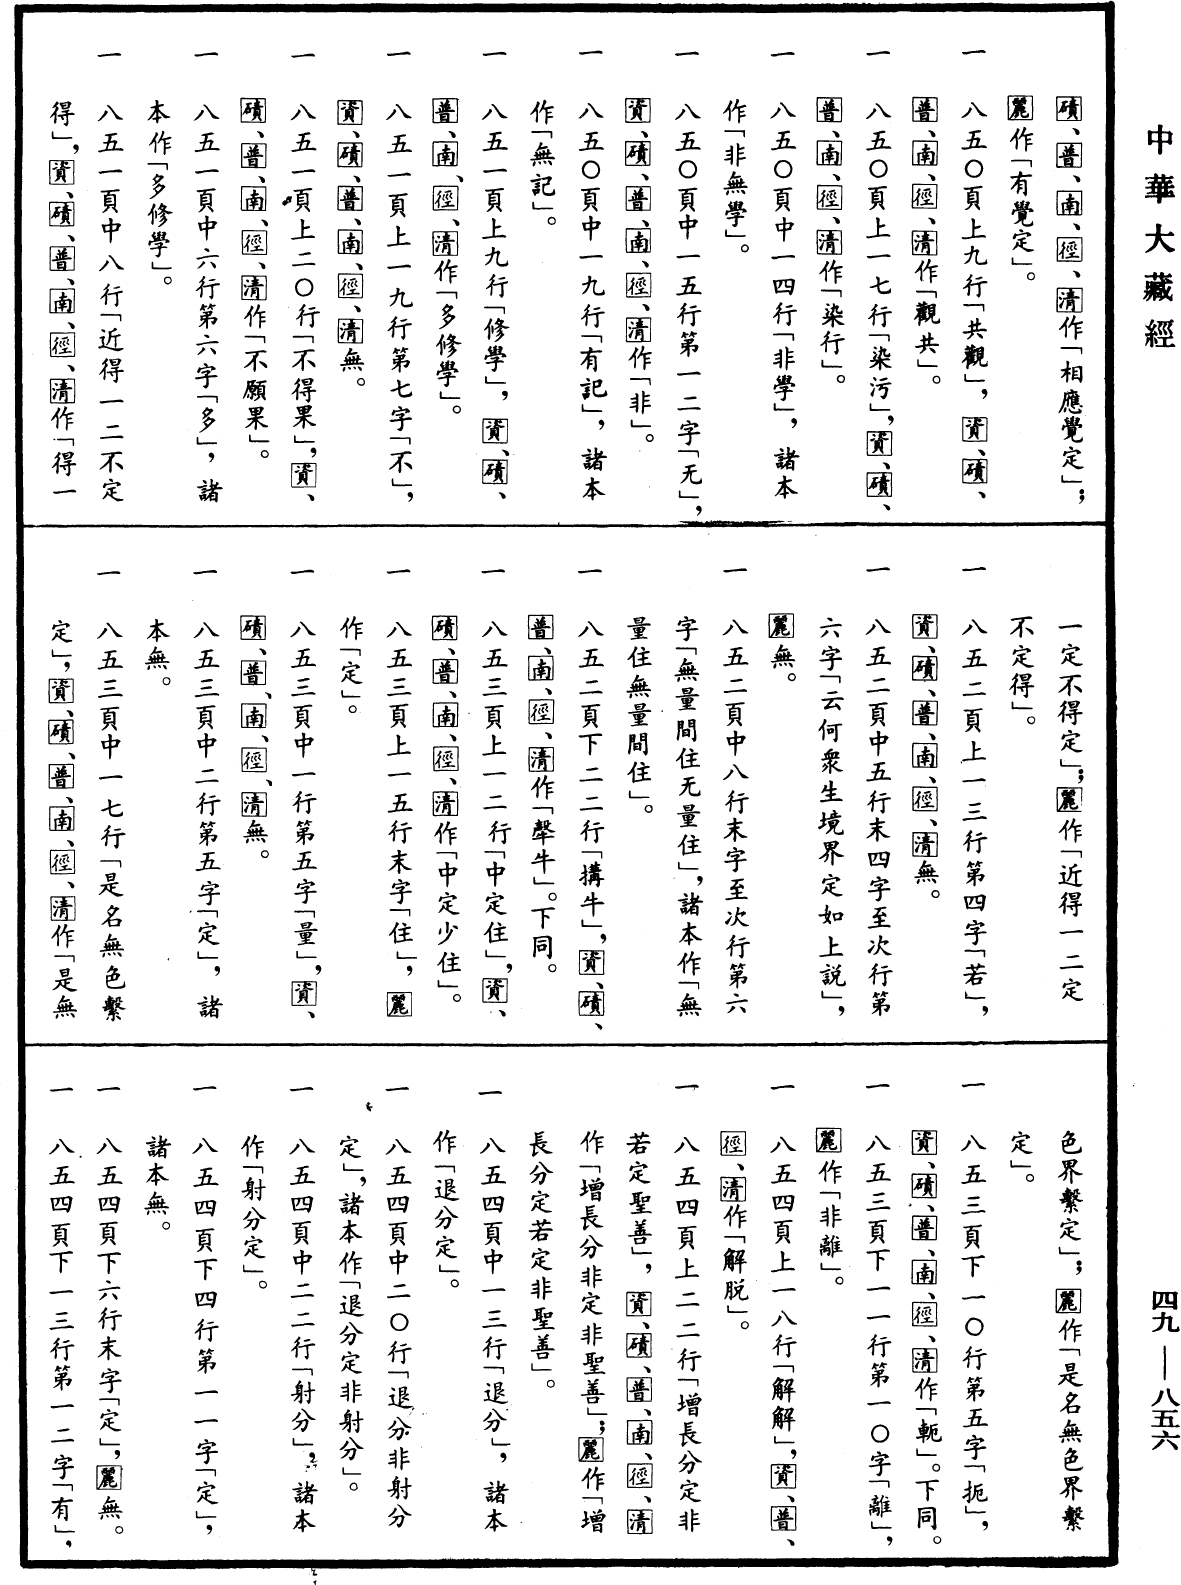 中華大藏經
磧、普、南、徑、清作「相應覺定」；
麗作「有覺定」。
一　八五〇頁上九行「共觀」，資、磧、
普、南、徑、清作「觀共」。
一　八五〇頁上一七行「染污」，資、磧、
普、南、徑、清作「染行」。
一　八五〇頁中一四行「非學」，諸本
作「非無學」。
一　八五〇頁中一五行第一二字「无」，
資、磧、普、南、徑、清作「非」。
一　八五〇頁中一九行「有記」，諸本
作「無記」。
一　八五一頁上九行「修學」，資、磧、
普、南、徑、清作「多修學」。
一　八五一頁上一九行第七字「不」，
資、磧、普、南、徑、清無。
一　八五一頁上二〇行「不得果」，資、
磧、普、南、徑、清作「不願果」。
一　八五一頁中六行第六字「多」，諸
本作「多修學」。
一　八五一頁中八行「近得一二不定
得」，資、磧、普、南、徑、清作「得一
一定不得定」；麗作「近得一二定
不定得」。
一　八五二頁上一三行第四字「若」，
資、磧、普、南、徑、清無。
一　八五二頁中五行末四字至次行第
六字「云何衆生境界定如上説」，
麗無。
一　八五二頁中八行末字至次行第六
字「無量間住无量住」，諸本作「無
量住無量間住」。
一　八五二頁下二二行「搆牛」，資、磧、
普、南、徑、清作「犛牛」。下同。
一　八五三頁上一二行「中定住」，資、
磧、普、南、徑、清作「中定少住」。
一　八五三頁上一五行末字「住」，麗
作「定」。
一　八五三頁中一行第五字「量」，資、
磧、普、南、徑、清無。
一　八五三頁中二行第五字「定」，諸
本無。
一　八五三頁中一七行「是名無色繫
定」，資、磧、普、南、徑、清作「是無
色界繫定」；麗作「是名無色界繫
定」。
一　八五三頁下一〇行第五字「扼」，
資、磧、普、南、徑、清作「軛」。下同。
一　八五三頁下一一行第一〇字「離」，
麗作「非離」。
一　八五四頁上一八行「解解」，資、普、
徑、清作「解脱」。
一　八五四頁上二二行「增長分定非
若定聖善」，資、磧、普、南、徑、清
作「增長分非定非聖善」；麗作「增
長分定若定非聖善」。
一　八五四頁中一三行「退分」，諸本
作「退分定」。
一　八五四頁中二〇行「退分非射分
定」，諸本作「退分定非射分」。
一　八五四頁中二二行「射分」，諸本
作「射分定」。
一　八五四頁下四行第一一字「定」，
諸本無。
一　八五四頁下六行末字「定」，麗無。
一　八五四頁下一三行第一二字「有」，
四九—八五六